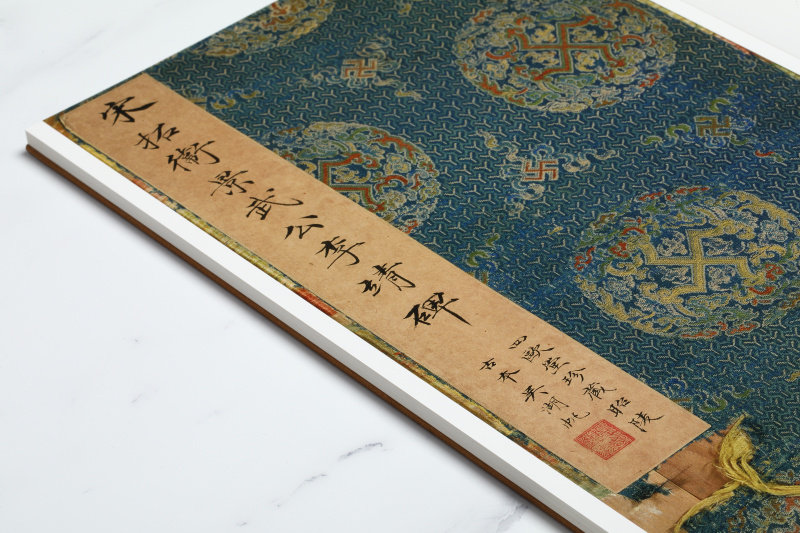 宋拓衛景武公李靖碑
四歐堂珍藏昭陵
古本吳湖帆